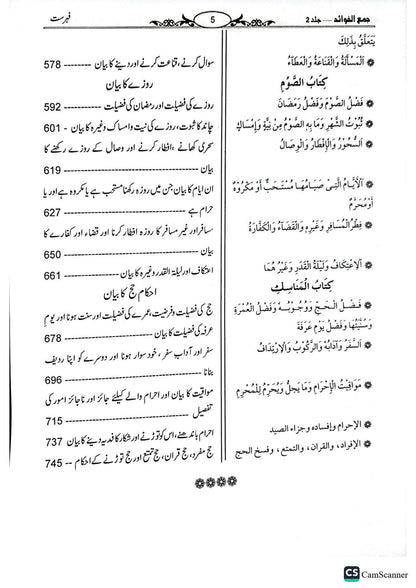 جمع الفوائد — جلد 2
5
فہرست
يَتَعَلَّقُ بِذٰلِكَ
❁ اَلْمَسْأَلَةُ وَالْقَنَاعَةُ وَالْعَطَاءُ
كِتَابُ الصَّوْمِ
❁ فَضْلُ الصَّوْمِ وَفَضْلُ رَمَضَانَ
❁ ثُبُوْتُ الشَّهْرِ وَمَا بِهِ الصَّوْمُ مِنْ نِيَّةٍ وَإِمْسَاكٍ
❁ اَلسُّحُوْرُ وَالْإِفْطَارُ وَالْوِصَالُ
❁ اَلْأَيَّامُ الَّتِيْ صِيَامُهَا مُسْتَحَبٌّ أَوْ مَكْرُوْهٌ
أَوْ مُحَرَّمٌ
❁ فِطْرُ الْمُسَافِرِ وَغَيْرِهِ وَالْقَضَاءُ وَالْكَفَّارَةُ
❁ اَلْاِعْتِكَافُ وَلَيْلَةُ الْقَدْرِ وَغَيْرُهُمَا
كِتَابُ الْمَنَاسِكِ
❁ فَضْلُ الْحَجِّ وَوُجُوْبُهُ وَفَضْلُ الْعُمْرَةِ
وَسُنِّيَّتُهَا وَفَضْلُ يَوْمِ عَرَفَةَ
❁ اَلسَّفَرُ وَآدَابُهُ وَالرُّكُوْبُ وَالْاِرْتِدَافُ
❁ مَوَاقِيْتُ الْإِحْرَامِ وَمَا يَحِلُّ وَيَحْرُمُ لِلْمُحْرِمِ
❁ الإحرام وإفساده وجزاء الصيد
❁ الإفراد، والقران، والتمتع، وفسخ الحج
سوال کرنے، قناعت کرنے اور دینے کا بیان -------- 578
روزے کا بیان
روزے کی فضیلت اور رمضان کی فضیلت -------- 592
چاند کا ثبوت، روزے کی نیت و امساک وغیرہ کا بیان - 601
سحری کھانے، افطار کرنے اور وصال کے روزے رکھنے کا
بیان -------- 619
ان ایام کا بیان جن میں روزہ رکھنا مستحب ہے یا مکروہ ہے اور یا
حرام ہے -------- 627
مسافر اور غیر مسافر کا روزہ افطار کرنا اور قضاء اور کفارے کا
بیان -------- 650
اعتکاف اور لیلۃ القدر وغیرہ کا بیان -------- 661
احکام حج کا بیان
حج کی فضیلت و فرضیت، عمرے کی فضیلت اور سنت ہونا اور یومِ
عرفہ کی فضیلت کا بیان -------- 678
سفر اور آداب سفر، خود سوار ہونا اور دوسرے کو اپنا ردیف
بنانا -------- 696
مواقیت کا بیان اور احرام والے کیلئے جائز اور ناجائز امور کی
تفصیل -------- 715
احرام باندھنے، اس کو توڑنے اور شکار کا فدیہ دینے کا بیان 737
حج مفرد، حج قران، حج تمتع اور حج توڑنے کے احکام -- 745
❁❁❁❁
CS CamScanner